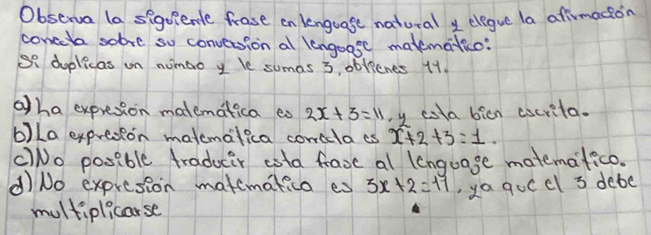 Observa la siguiente frase en lenguaje natural y elegue la afirmación
correcta sobre su conversión al lenguaje matemático:
Si duplicas un número y le sumas 3, obtienes 11.
a) La expresión matemática es 2x+3=11, y esta bien escrita.
b) La expresión matemática correcta es x+2+3=1.
c) No posible traducir esta frase al lenguaje matemático.
d) No expresión matemática es 3x+2=11, ya que el 3 debe
multiplicarse